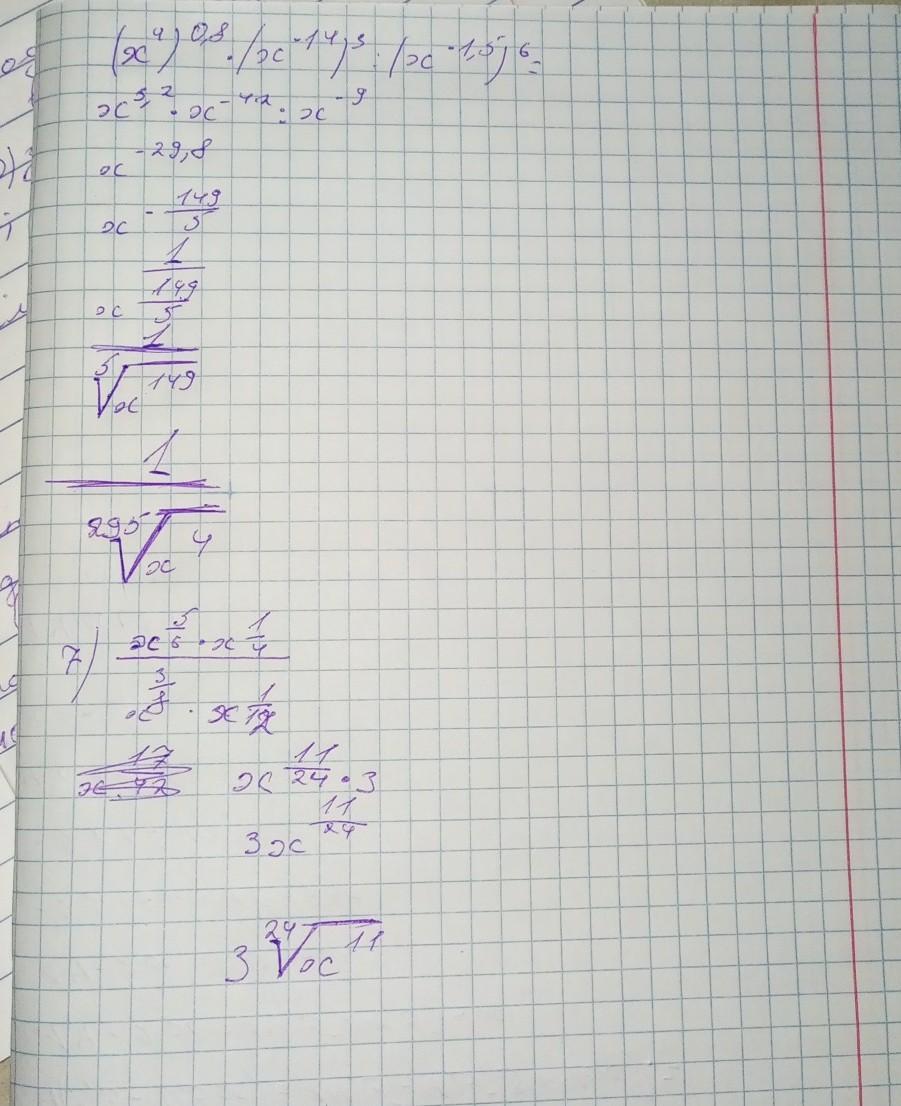 (x⁴)^0,8 · (x^-14)^3 : (x^-1,5)^6 =
x^3,2 · x^-42 : x^-9
x^-29,8
x^-149/5
1/x^149/5
1/⁵√x^149
1/²⁹⁵√x^4
7) (x^5/6 · x^1/4)/(x^3/8 · x^1/12)
x^11/24 · 3
3x^11/24
3 ²⁴√x^11